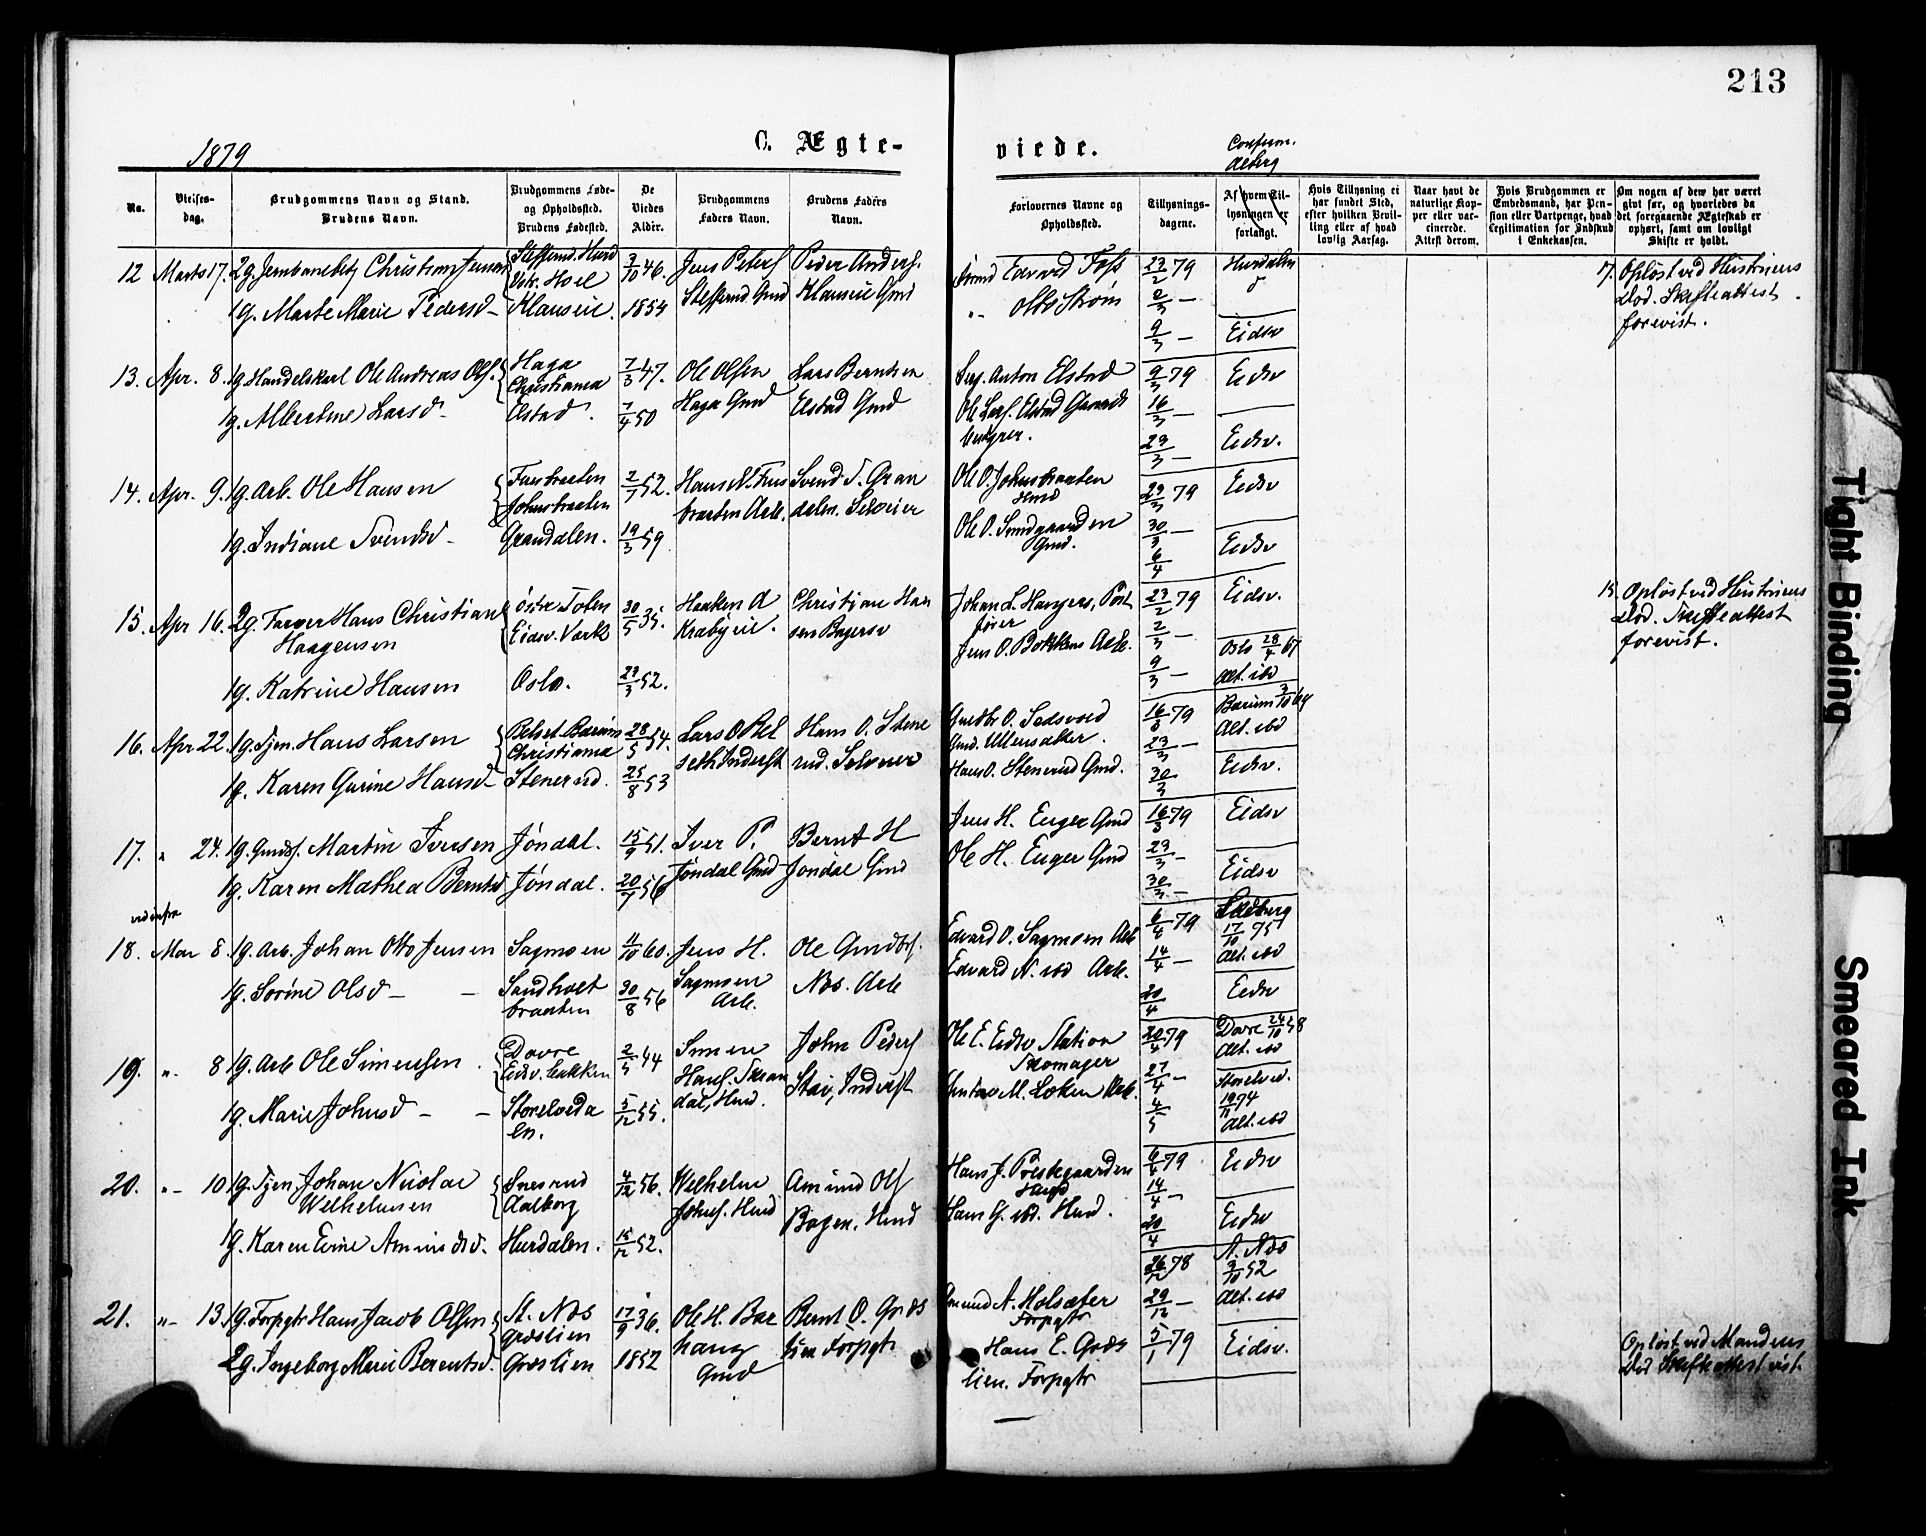 213
1879
C. Ægte-
viede.
Confirm.
No.
Vielses-
dag.
Brudgommens Navn og Stand.
Brudens Navn.
Brudgommens Føde-
og Opholdssted.
Brudens Fødested.
De
Viedes
Alder.
Brudgommens
Faders Navn.
Brudens Faders
Navn.
Forlovernes Navne og
Opholdssted.
Tillysnings-
dagene.
Af hvem Til-
lysningen er
forlangt.
Hvis Tillysning ei
har fundet Sted,
efter hvilken Bevil-
ling eller af hvad
lovlig Aarsag.
Naar havt de
naturlige Kop-
per eller vac-
cinerede.
Attest derom.
Hvis Brudgommen er
Embedsmand, har Pen-
sion eller Vartpenge, hvad
Legitimation for Indskud
i Enkekassen.
Om nogen af dem har været
gift før, og hvorledes da
det foregaaende Ægteskab er
ophørt, samt om lovligt
Skifte er holdt.
12 Marts 17. 2g. Jernbanebetj Christian Jensen
1g. Marte Marie Pedersd-
Klauseie.
3/10 46.
1854
Jens Peters
Peder Anders.
Klauseie Gmd
Edvard Foss
Otto Strøm
23/2 79
2/3 -
9/3 -
Hurdalen
Eidsv
17. Opløst ved Hustruens
Død. Skifteattest
forevist.
13. Apr. 8. 1g. Handelskarl Ole Andreas Ols.
1g. Albertine Larsd-
Haga
Christiania
Elstad.
7/3 47.
7/4 50
Ole Olsen
Haga Gmd
Lars Berntsen
Elstad Gmd
Anton Elstad
Ole Lars. Elstad Gaard
bruger.
9/3 79
16/3 -
23/3 -
Eidsv
Eidsv.
14. Apr. 9. 1g. Arb. Ole Hansen
1g. Indiane Svendsd-
Johnsbraaten
Grandalen.
2/7 52.
19/3 59
Hans N.
braaten Arb.
Svend T. Gran
dalen. Selveier
Ole O. Johnsbraaten
Hmd
Ole O. Sundgaarden
Gmd.
23/3 79
30/3 -
6/4
Eidsv
Eidsv
15. Apr 16. 2g. Farver Hans Christian
Haagensen
1g. Katrine Hansen
østre Toten
Eidsv. Værk
Oslo.
30/5 35.
23/3 52.
Haaken A
Krabyeie.
Christian Han
sen Bagersv
Johan L. Haugers, Port
fører
Jens O. Bækkens Arb.
23/2 79
2/3 -
9/3 -
Eidsv.
Oslo 28/4 67
Alt. ibd
15. Opløst ved Hustruens
Død. Skifteattest
forevist.
16. Apr 22. 1g. Tjen. Hans Larsen
1g. Karen Gurine Hansd-
Belset Bærum
Christiania
Stenerud.
28/5 54.
25/8 53
Lars O Bel
seth Inderst
Hans O. Stene
rud. Selveier
Gmd. Ullensaker.
Hans O. Stenerud Gmd.
16/3 79
23/3 -
30/3
Bærum 3/10 69
Alt. ibd
Eidsv.
17. " 24. 1g. Gmds. Martin Iversen
1g. Karen Mathea Berntsd
Jøndal.
Jøndal.
15/9 51.
20/7 56
Iver P.
Jøndal Gmd
Bernt H
Jøndal Gmd
Jens H. Euger Gmd
Ole H. Euger Gmd
16/3 79
23/3 -
30/3 -
Eidsv
Eidsv
18. Mai 8. 1g. Arb. Johan Otto Jensen
1g. Sorine Olsd-
Sagmoen
Sandholt
braaten
11/10 60.
30/8 56
Jens H.
Sagmoen
Arb.
Ole Gmdbs.
Næs. Arb
Edvard O. Sagmoen Arb
Edvard N. ibd Arb.
6/4 79
14/4 -
20/4
17/10 75
Alt. ibd
Eidsv
19. " 8 1g. Arb Ole Simensen.
1g. Marie Johnsd-
Dovre
Eidsv. bakken
Storelveda
len.
2/5 44
5/12 55.
Simen
Hans.
dal, Hmd.
John Peders
Stai, Inderst
Ole E. Eidsv Station
Skomager
Gustav M. Løken Arb.
20/4 79
27/4 -
4/5
Dovre 24/10 58
Alt. ibd
Storelved.
19/11 74
Alt. ibd
20. " 10 1g. Tjen. Johan Nicolai
Wilhelmsen
1g. Karen Eline Amundsd.
Snesrud
Aalborg
Hurdalen.
4/12 56.
15/12 52.
Wilhelm
Johns. Hmd
Amund Ols
Bagen. Hmd
Hans J. Prestegaarden
Hmd
Hans G. ibd. Hmd.
6/4 79
14/4 -
20/4
Eidsv
Eidsv
21. " 13. 1g. Forpgtr Hans Jacob Olsen
2g. Ingeborg Marie Berentsd.
N. Næs
Græslien
Græslien
17/9 36.
1852
Ole H. Bær
haug
Gmd
Bernt O. Græs
lien Forpgtr
Amund A. Holsæter
Forpgtr
Hans E. Græs
lien. Forpgtr
26/12 78
29/12 -
5/1 79
N. Næs
3/10 52
Alt. ibd
Eidsv.
Opløst ved Mandens
Død Skifteattest vist.
Tight Binding
Smeared Ink